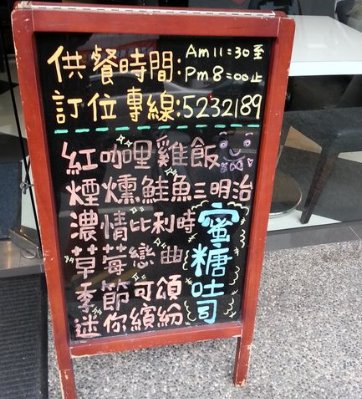 供餐時間:Am11:30至
Pm8:00止
訂位專線:5232189
紅咖哩雞飯
煙燻鮭魚三明治
濃情比利時
草莓戀曲
季節可頌
迷你繽紛
蜜糖吐司